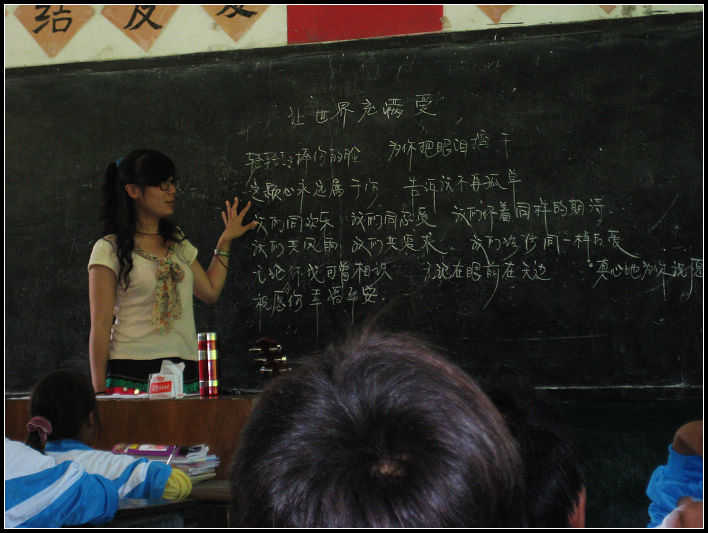 结 友
让世界充满爱
轻轻地捧你的脸 为你把眼泪擦干
这颗心永远属于你 告诉我不再孤单
我们同欢乐 我们同忍受 我们怀着同样的期待
我们共风雨 我们共追求 我们珍存同一样的爱
无论你我可曾相识 无论在眼前在天边 真心地为你祝愿
祝愿你幸福平安